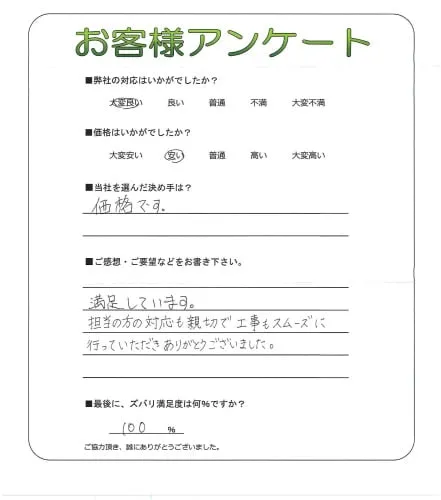 お客様アンケート
■弊社の対応はいかがでしたか?
大変良い 良い 普通 不満 大変不満
■価格はいかがでしたか?
大変安い 安い 普通 高い 大変高い
■当社を選んだ決め手は?
価格です。
■ご感想・ご要望などをお書き下さい。
満足しています。
担当の方の対応も親切で工事もスムーズに
行っていただきありがとうございました。
■最後に、ズバリ満足度は何%ですか?
100 %
ご協力頂き、誠にありがとうございました。